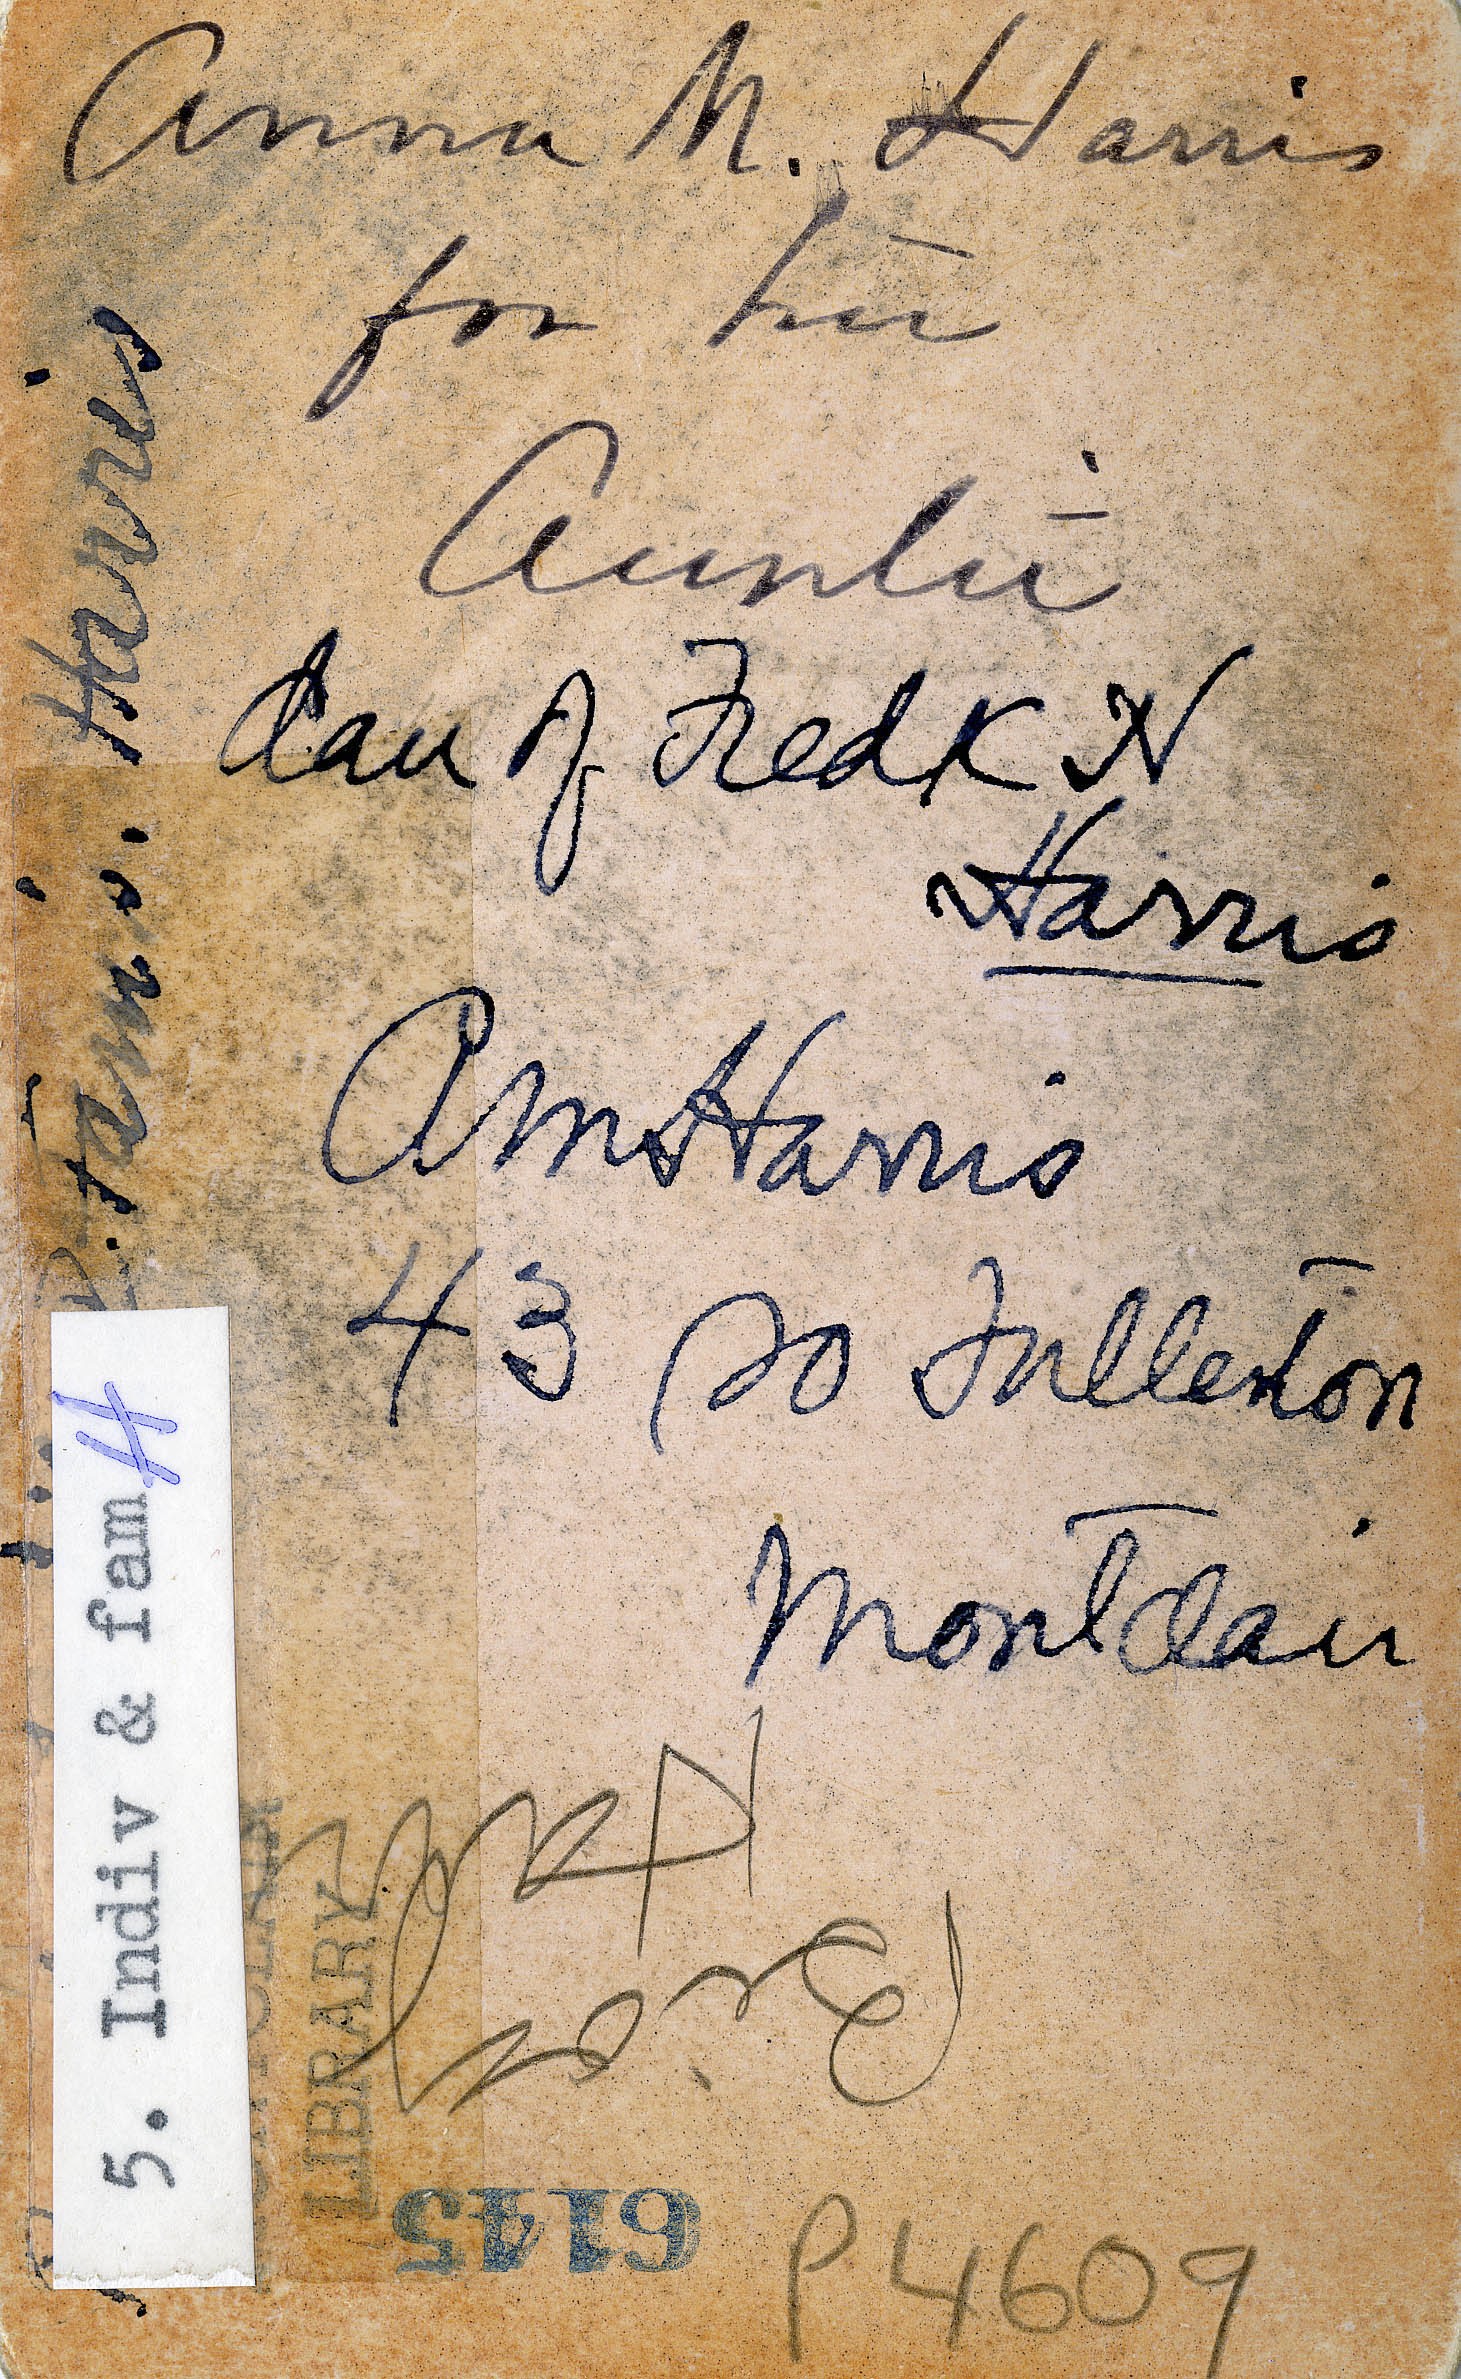 Anna M. Harris
for her
Auntie
dau of Fredk N
Harris
AM Harris
43 So Fullerton
Montclair
Harris
5. Indiv & fam H
LIBRARY
6145
P4609